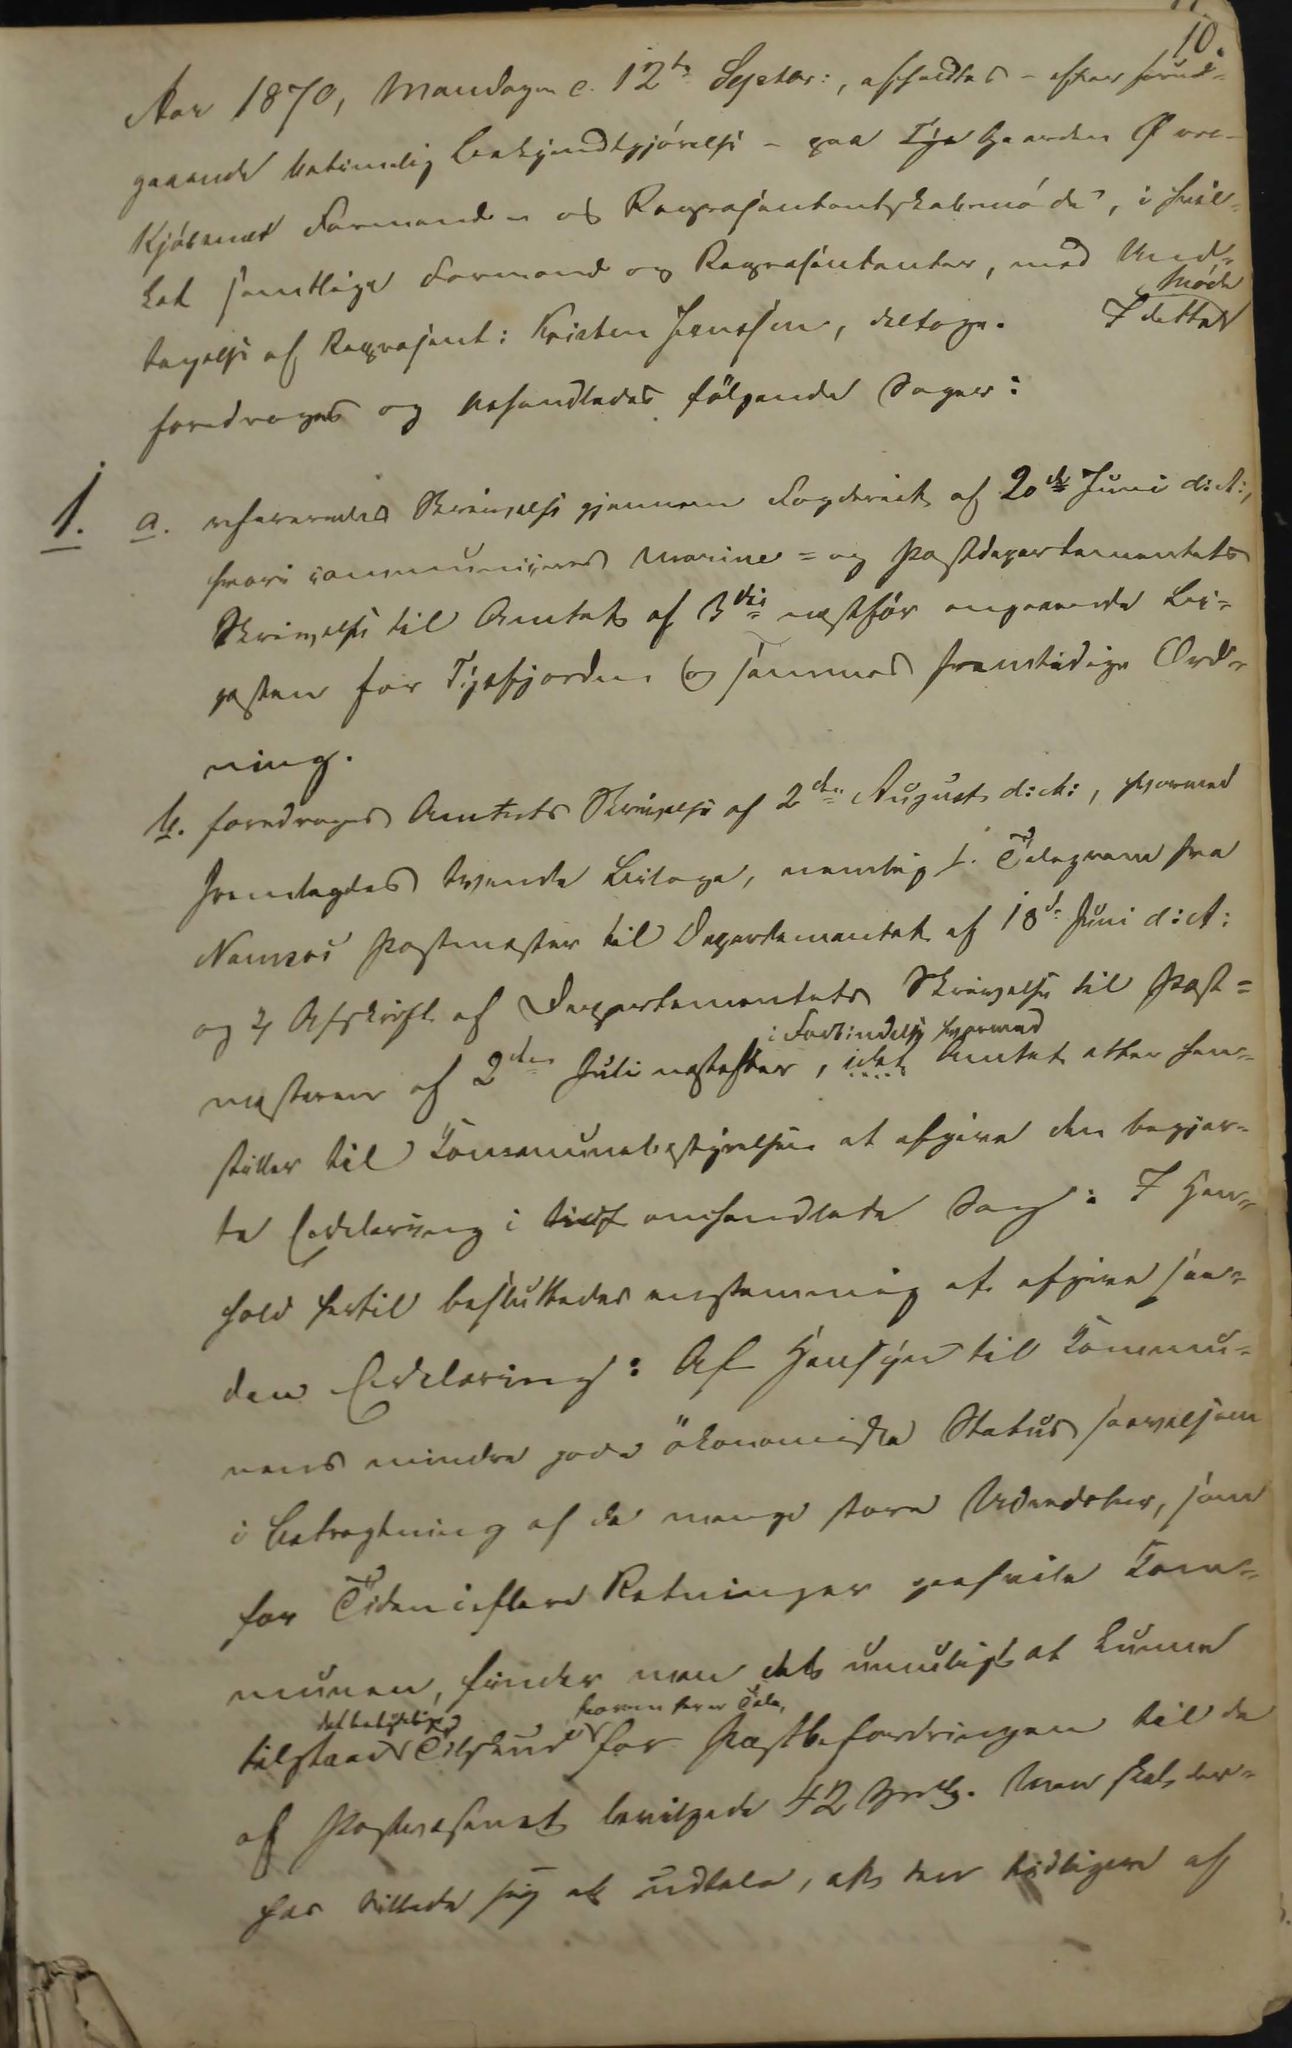 10.
Aar 1870, Mandagen d. 12te Septbr:, afholdtes – efter forud-
gaaende betimelig Bekjendtgjørelse – paa Gaarden Øvre-
Kjøbmæd Formands og Repræsentantskabsmøde, i hvil-
ket samtlige Formænd og Repræsentanter, med Und-
tagelse af Repræsent: Kristen Jenssen, deltoge. I dette Møde
foredroges og behandledes følgende Sager:
1. a. refereredes Skrivelse gjennem Fogderiet af 20de Juni d: A:,
hvori communiceres Marine= og Postdepartementets
Skrivelse til Amtet af 3die næstfør angaaende Bi-
posten for Tysfjorden og sammes fremtidige Ord-
ning.
b. foredroges Amtets Skrivelse af 2den August d: A:, hvormed
fremlagdes tvende Bilage, nemlig 1. Telegram fra
Namsos Postmester til Departementet af 18de Juni d: A:
og 2, Afskrift af Departementets Skrivelse til Post=
mesteren af 2den Juli næstefter, i Forbindelse hvormed Amtet atter hen-
stiller til Kommunebestyrelsen at afgive den begjær-
te Erklæring i omhandlede Sag: I Hen-
hold hertil besluttedes enstemmig at afgive saa-
dan Erklæring: Af Hensyn til Kommu-
nens mindre gode økonomiske Status saavelsom
i Betragtning af de mange store Udredsler, som
for Tiden i flere Retninger paahvile Kom-
munen, finder man det umuligt at kunne
tilstaae det betydelige Tilskud, hvorom her er Tale, for Postbefordringen til de
af Postvæsenet bevilgede 42 Spdlr. Man skal der-
hos tillade sig at udtale, at den tidligere af